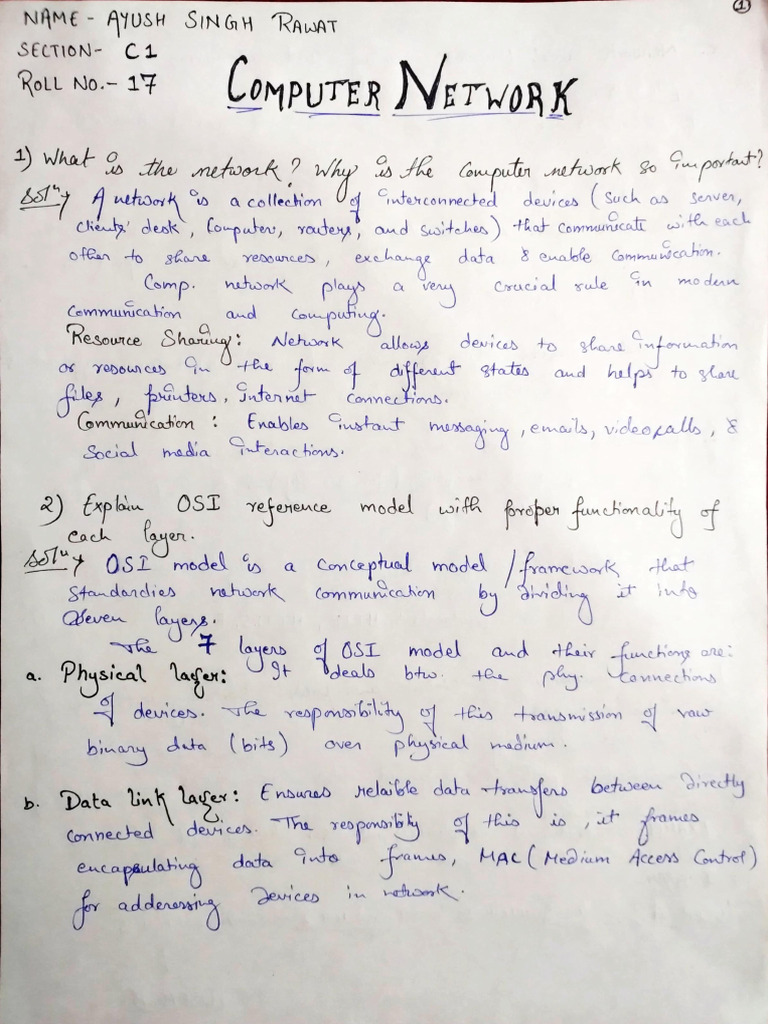 ①
NAME - AYUSH SINGH RAWAT
SECTION- C1
ROLL NO.- 17
COMPUTER NETWORK
1) What is the network? Why is the Computer network so important?
Solⁿ→ A network is a collection of interconnected devices (such as server,
clients' desk, Computer, routers, and switches) that communicate with each
other to share resources, exchange data & enable communication.
Comp. network plays a very crucial rule in modern
communication and computing.
Resource Sharing: Network allows devices to share information
or resources in the form of different states and helps to share
files, printers, internet connections.
Communication: Enables instant messaging, emails, video calls, &
Social media interactions.
2) Explain OSI reference model with proper functionality of
each layer.
Solⁿ→ OSI model is a conceptual model / framework that
standardies network communication by dividing it into
seven layers.
The 7 layers of OSI model and their functions are:
a. Physical layer: It deals btw. the phy. connections
of devices. The responsibility of this transmission of raw
binary data (bits) over physical medium.
b. Data link layer: Ensures relaible data transfers between directly
connected devices. The responsibility of this is, it frames
encapsulating data into frames, MAC (Medium Access Control)
for adderessing devices in network.